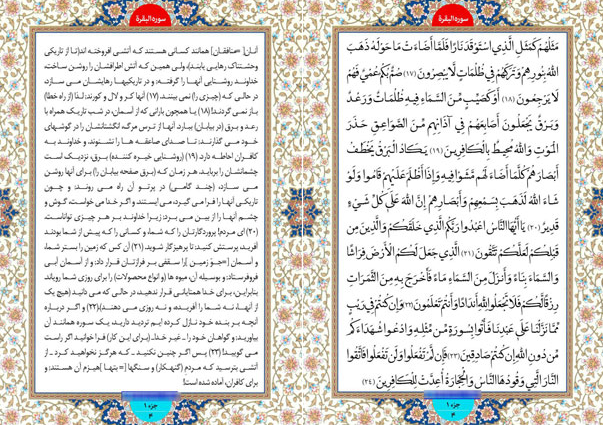 سورة البقرة
مَثَلُهُمْ كَمَثَلِ الَّذِي اسْتَوْقَدَ نَارًا فَلَمَّا أَضَاءَتْ مَا حَوْلَهُ ذَهَبَ
اللَّهُ بِنُورِهِمْ وَتَرَكَهُمْ فِي ظُلُمَاتٍ لَّا يُبْصِرُونَ (۱۷) صُمٌّ بُكْمٌ عُمْيٌ فَهُمْ
لَا يَرْجِعُونَ (۱۸) أَوْ كَصَيِّبٍ مِّنَ السَّمَاءِ فِيهِ ظُلُمَاتٌ وَرَعْدٌ
وَبَرْقٌ يَجْعَلُونَ أَصَابِعَهُمْ فِي آذَانِهِم مِّنَ الصَّوَاعِقِ حَذَرَ
الْمَوْتِ وَاللَّهُ مُحِيطٌ بِالْكَافِرِينَ (۱۹) يَكَادُ الْبَرْقُ يَخْطَفُ
أَبْصَارَهُمْ كُلَّمَا أَضَاءَ لَهُم مَّشَوْا فِيهِ وَإِذَا أَظْلَمَ عَلَيْهِمْ قَامُوا وَلَوْ
شَاءَ اللَّهُ لَذَهَبَ بِسَمْعِهِمْ وَأَبْصَارِهِمْ إِنَّ اللَّهَ عَلَى كُلِّ شَيْءٍ
قَدِيرٌ (۲۰) يَا أَيُّهَا النَّاسُ اعْبُدُوا رَبَّكُمُ الَّذِي خَلَقَكُمْ وَالَّذِينَ مِن
قَبْلِكُمْ لَعَلَّكُمْ تَتَّقُونَ (۲۱) الَّذِي جَعَلَ لَكُمُ الْأَرْضَ فِرَاشًا
وَالسَّمَاءَ بِنَاءً وَأَنزَلَ مِنَ السَّمَاءِ مَاءً فَأَخْرَجَ بِهِ مِنَ الثَّمَرَاتِ
رِزْقًا لَّكُمْ فَلَا تَجْعَلُوا لِلَّهِ أَندَادًا وَأَنتُمْ تَعْلَمُونَ (۲۲) وَإِن كُنتُمْ فِي رَيْبٍ
مِّمَّا نَزَّلْنَا عَلَى عَبْدِنَا فَأْتُوا بِسُورَةٍ مِّن مِّثْلِهِ وَادْعُوا شُهَدَاءَكُم
مِّن دُونِ اللَّهِ إِن كُنتُمْ صَادِقِينَ (۲۳) فَإِن لَّمْ تَفْعَلُوا وَلَن تَفْعَلُوا فَاتَّقُوا
النَّارَ الَّتِي وَقُودُهَا النَّاسُ وَالْحِجَارَةُ أُعِدَّتْ لِلْكَافِرِينَ (۲۴)
جزء ۱
۴
سورة البقرة
آنان [=منافقان] همانند کسانی هستند که آتشی افروخته اند (تا از تاریکی
وحشتناک رهایی یابند)، ولی همین که آتش اطرافشان را روشن ساخت
خداوند روشنایی آنها را گرفته؛ و در تاریکیها رهایشان می سازد،
در حالی که (چیزی را) نمی بینند. (۱۷) آنها کر و لال و کورند؛ لذا (از راه خطا)
باز نمی گردند! (۱۸) یا همچون بارانی که از آسمان، در شب تاریک همراه با
رعد و برق (در بیابان) ببارد. آنها از ترس مرگ انگشتانشان را در گوشهای
خود می گذارند؛ تا صدای صاعقه ها را نشنوند. و خداوند به
کافران احاطه دارد. (۱۹) (روشنایی خیره کننده) برق، نزدیک است
چشمانشان را برباید. هر زمان که (برق صفحه بیابان را) برای آنها روشن
می سازد، (چند گامی) در پرتو آن راه می روند؛ و چون
تاریکی آنها را فرا می گیرد، می ایستند. و اگر خدا می خواست، گوش و
چشم آنها را از بین می برد؛ زیرا خداوند بر هر چیزی تواناست.
(۲۰) ای مردم! پروردگارتان را که شما، و کسانی را که پیش از شما بودند
آفرید، پرستش کنید؛ تا پرهیزگار شوید. (۲۱) آن کس که زمین را بستر شما،
و آسمان [=جو زمین] را سقفی بر فرازتان قرار داد؛ و از آسمان آبی
فروفرستاد؛ و بوسیله آن، میوه ها (و انواع محصولات) را برای روزی شما رویاند.
بنابراین، برای خدا همتایانی قرار ندهید، در حالی که می دانید (هیچ یک
از آنها، نه شما را آفریده، و نه روزی می دهند). (۲۲) و اگر درباره
آنچه بر بنده خود نازل کرده ایم تردید دارید، یک سوره همانند آن
بیاورید؛ و گواهان خود را ـ غیر خدا ـ (برای این کار) فرا خوانید اگر راست
می گویید! (۲۳) پس اگر چنین نکنید ـ که هرگز نخواهید کرد ـ از
آتشی بترسید که مردم (گنهکار) و سنگها [= بتها] هیزم آن هستند؛ و
برای کافران، آماده شده است!
جزء ۱
۴